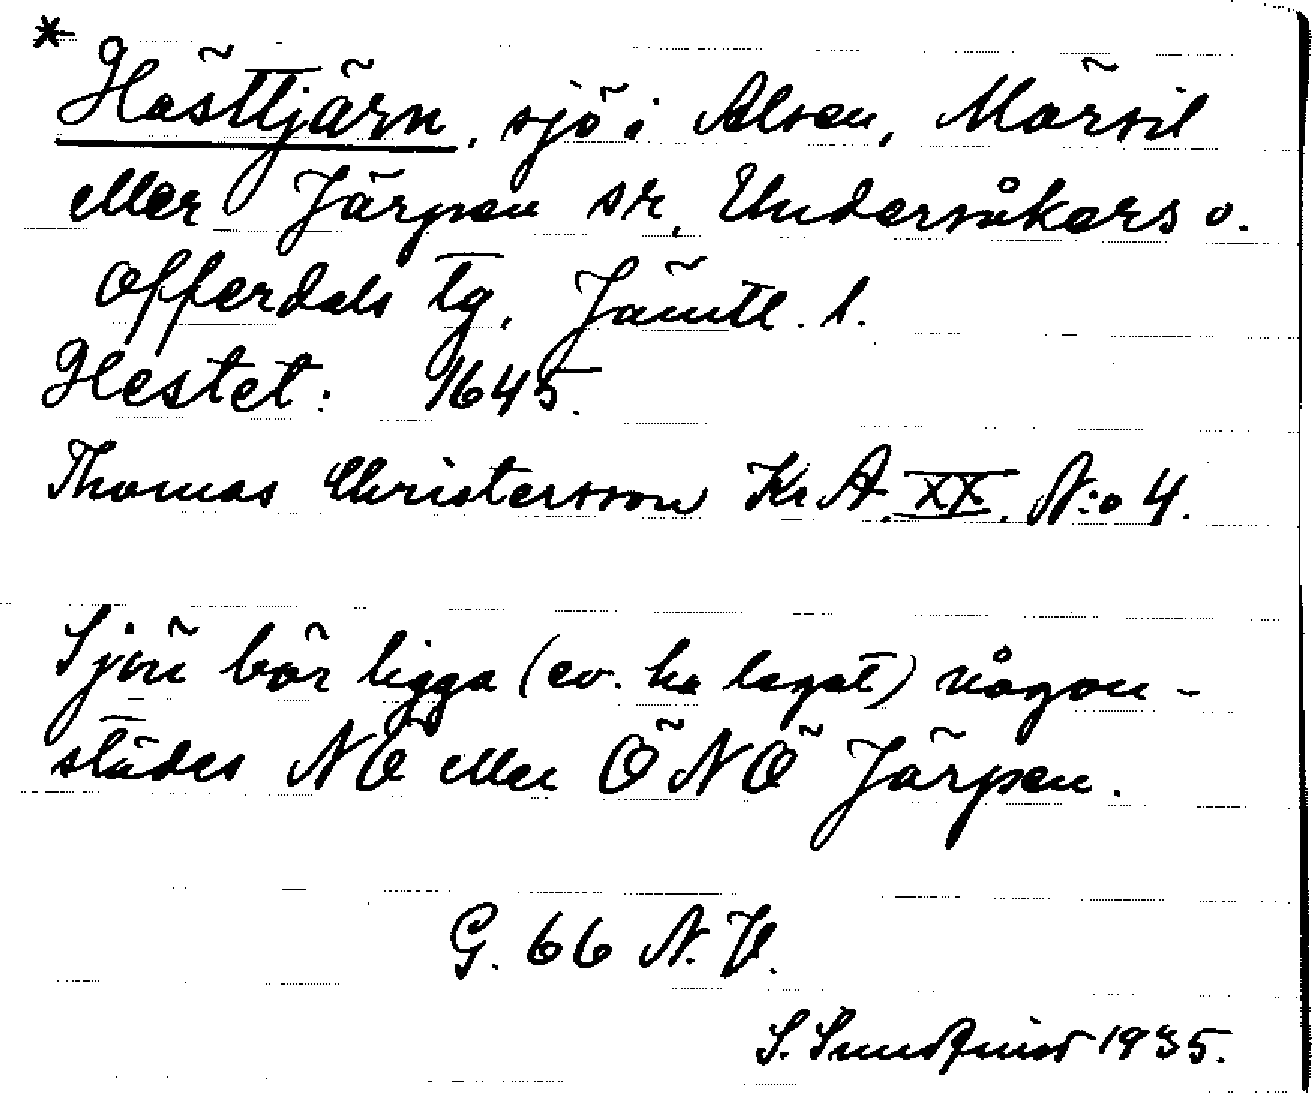 * Hästtjärn, sjö i Alsen, Mörsil
eller Järpen sn, Undersåkers o.
Offerdals tg, Jämtl. l.
Hestet: 1645.
Thomas Christersson KrA. XX. N:o 4.
Sjön bör ligga (ev. ha legat) någon-
städes NÖ eller ÖNÖ Järpen.
G. 66 N.V.
S. Sundquist 1935.